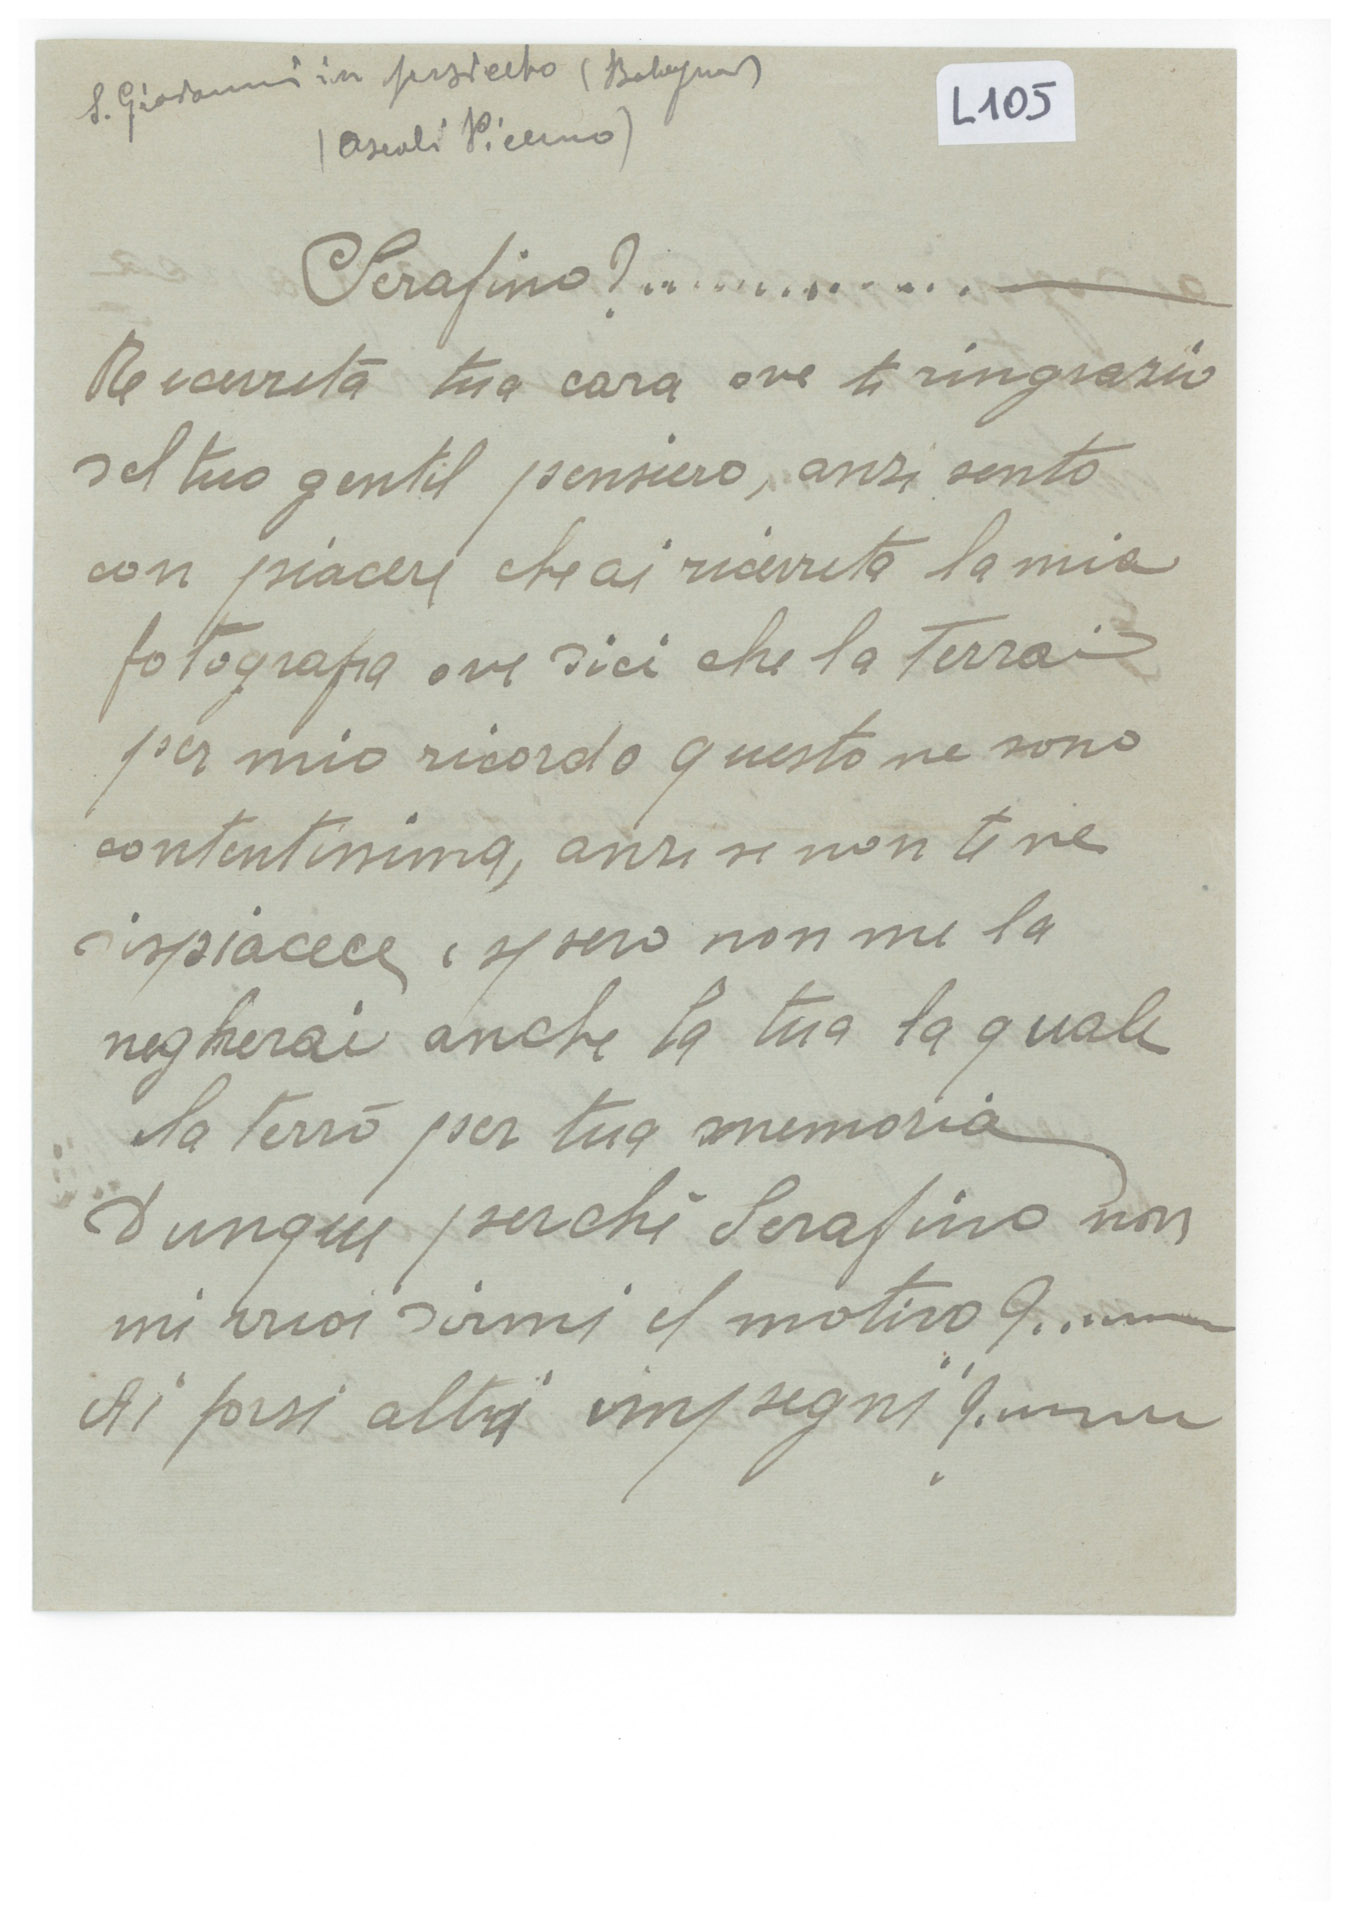 S. Giovanni in persiceto (Bologna)
(Ascoli Piceno)
L105
Serafino?............
Recevuta tua cara ove ti ringrazio
del tuo gentil pensiero, anzi sento
con piacere che ai ricevuta la mia
fotografia ove dici che la terrai
per mio ricordo questo ne sono
contentissima, anzi se non te ne
dispiacece, spero non me la
negherai anche la tua la quale
la terrò per tua memoria
Dunque perchè Serafino non
mi vuoi dirmi il motivo?......
Ai forsi altri impegni?......